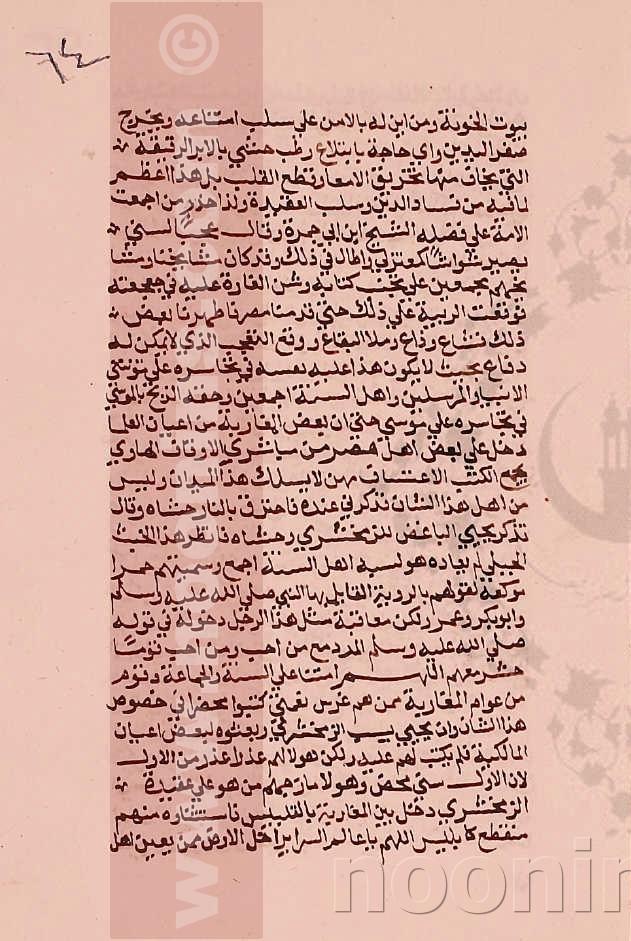 ٦٤
بيوت الخونة ومن اين له بالامن علي سلب امتناعه ويخرج
صفر اليدين واي حاجة بابتلاع رطب حشي بالابر الرقيقة
التي يخاف منها تخريق الامعا وتقطع القلب بل هذا اعظم
لما فيه من فساد الدين وسلب العقيدة ولذا حذر من اجمعت
الامة علي فضله الشيخ ابن ابي جمرة وقال عجبا لسني
يصير شواشا كمعتزلي واطال في ذلك وقد كان مشايخنا ومشا
يخهم مجمعين علي تجنب كتابه وشن الغارة عليه في جعجعته
توقفت الريبة علي ذلك حتي قدمنا مصر فاظهرنا لبعض
ذلك فشاع وذاع وملا البقاع ووقع التعجب الذي لا يمكن له
دفاع بحيث لا يكون هذا عليه نفسه في تجاسره علي
الانبيا والمرسلين واهل السنة اجمعين
في تجاسره علي موسي حتي ان بعض المغاربة من اعيان العلما
دخل علي بعض اهل مصر من مباشري الاوقاف الهاوي
بجمع الكتب الاعتساف ممن لا يسلك هذا الميدان وليس
من اهل هذا الشان فذكرني عنده فاحترق بالنار حشاه وقال
تذكر يحيي الباغض للزمخشري وحشاه فانظر هذا الخبث
الجبلي لم يعاده هو لسبه اهل السنة اجمع وتسميتهم حمرا
موكفة لقولهم بالروية القايل بها النبي صلي الله عليه وسلم
وابو بكر وعمر ولكن معاقبة مثل هذا الرجل دخوله في قوله
صلي الله عليه وسلم المرء مع من احب ومن احب قوما
حشر معهم اللهم امتنا علي السنة والجماعة وقوم
من عوام المغاربة ممن هم غرس نعمتي كتبوا محضرا في خصوص
هذا الشان وان يحيي يسب الزمخشري وبعثوه لبعض اعيان
المالكية فلم يكتب لهم عليه ولكن هولا لهم عذر اعذر من الاول
لان الاول سني محض وهولا ما رحبهم من هو علي عقيدة
الزمخشري دخل بين المغاربة بالتلبيس فاستشاره منهم
منقطع كابليس اللهم يا عالم السراير اخل الارض ممن يعين اهل
www.noonin.com
©
noonin